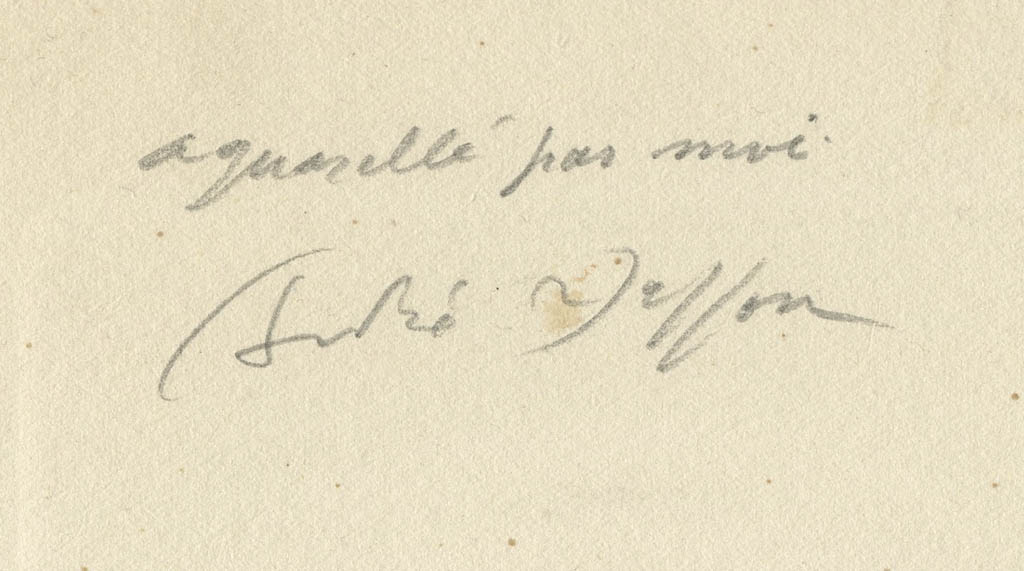 aquarellé par moi.
André